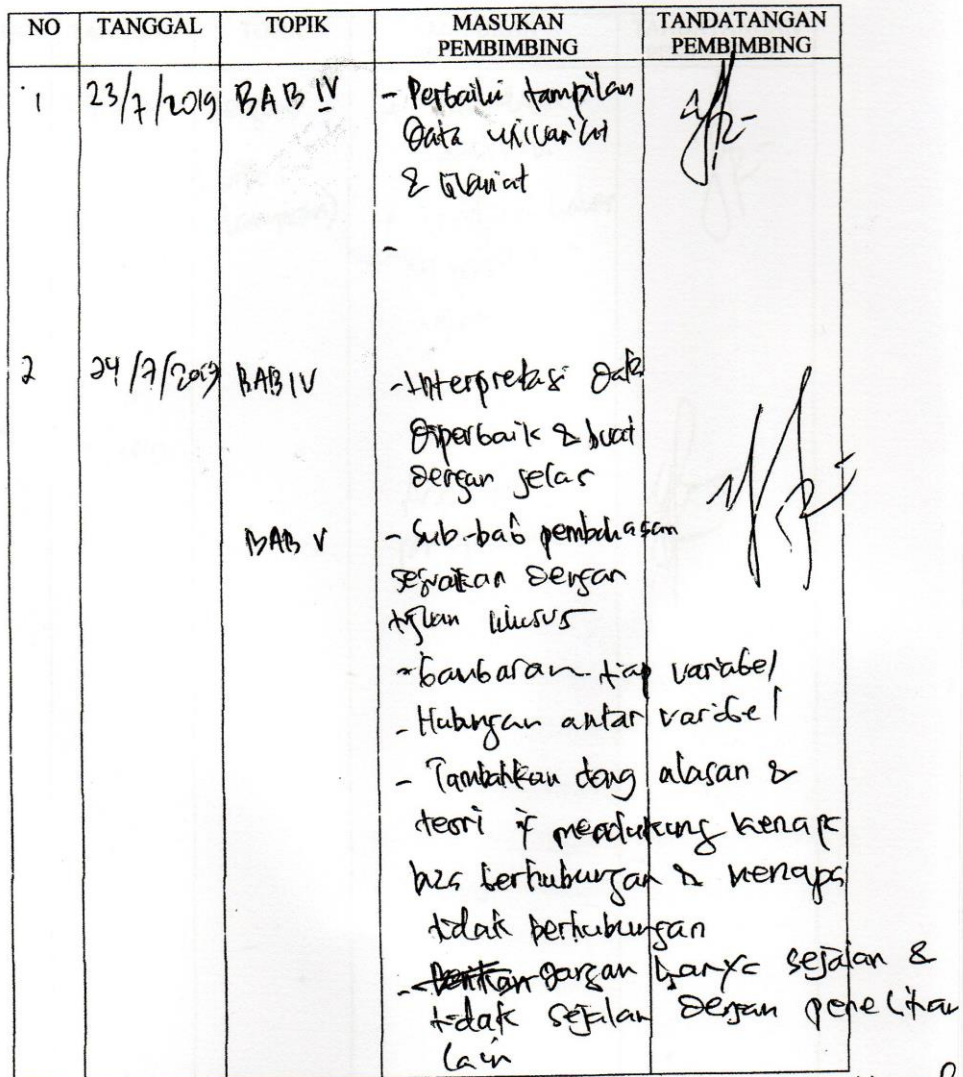 NO TANGGAL TOPIK MASUKAN PEMBIMBING TANDATANGAN PEMBIMBING
1 23/7/2019 BAB IV - Perbaiki tampilan
Data univariat
& bivariat
-
2 24/7/2019 BAB IV - Interpretasi Data
Diperbaik & buat
dengan jelas
BAB V - Sub-bab pembahasan
sesuaikan dengan
tujuan khusus
- Gambaran tiap variabel
- Hubungan antar variabel
- Tambahkan alasan &
teori mendukung kenapa
bisa berhubungan & kenapa
tidak berhubungan
- jangan hanya sejalan &
tidak sejalan dengan penelitian
lain